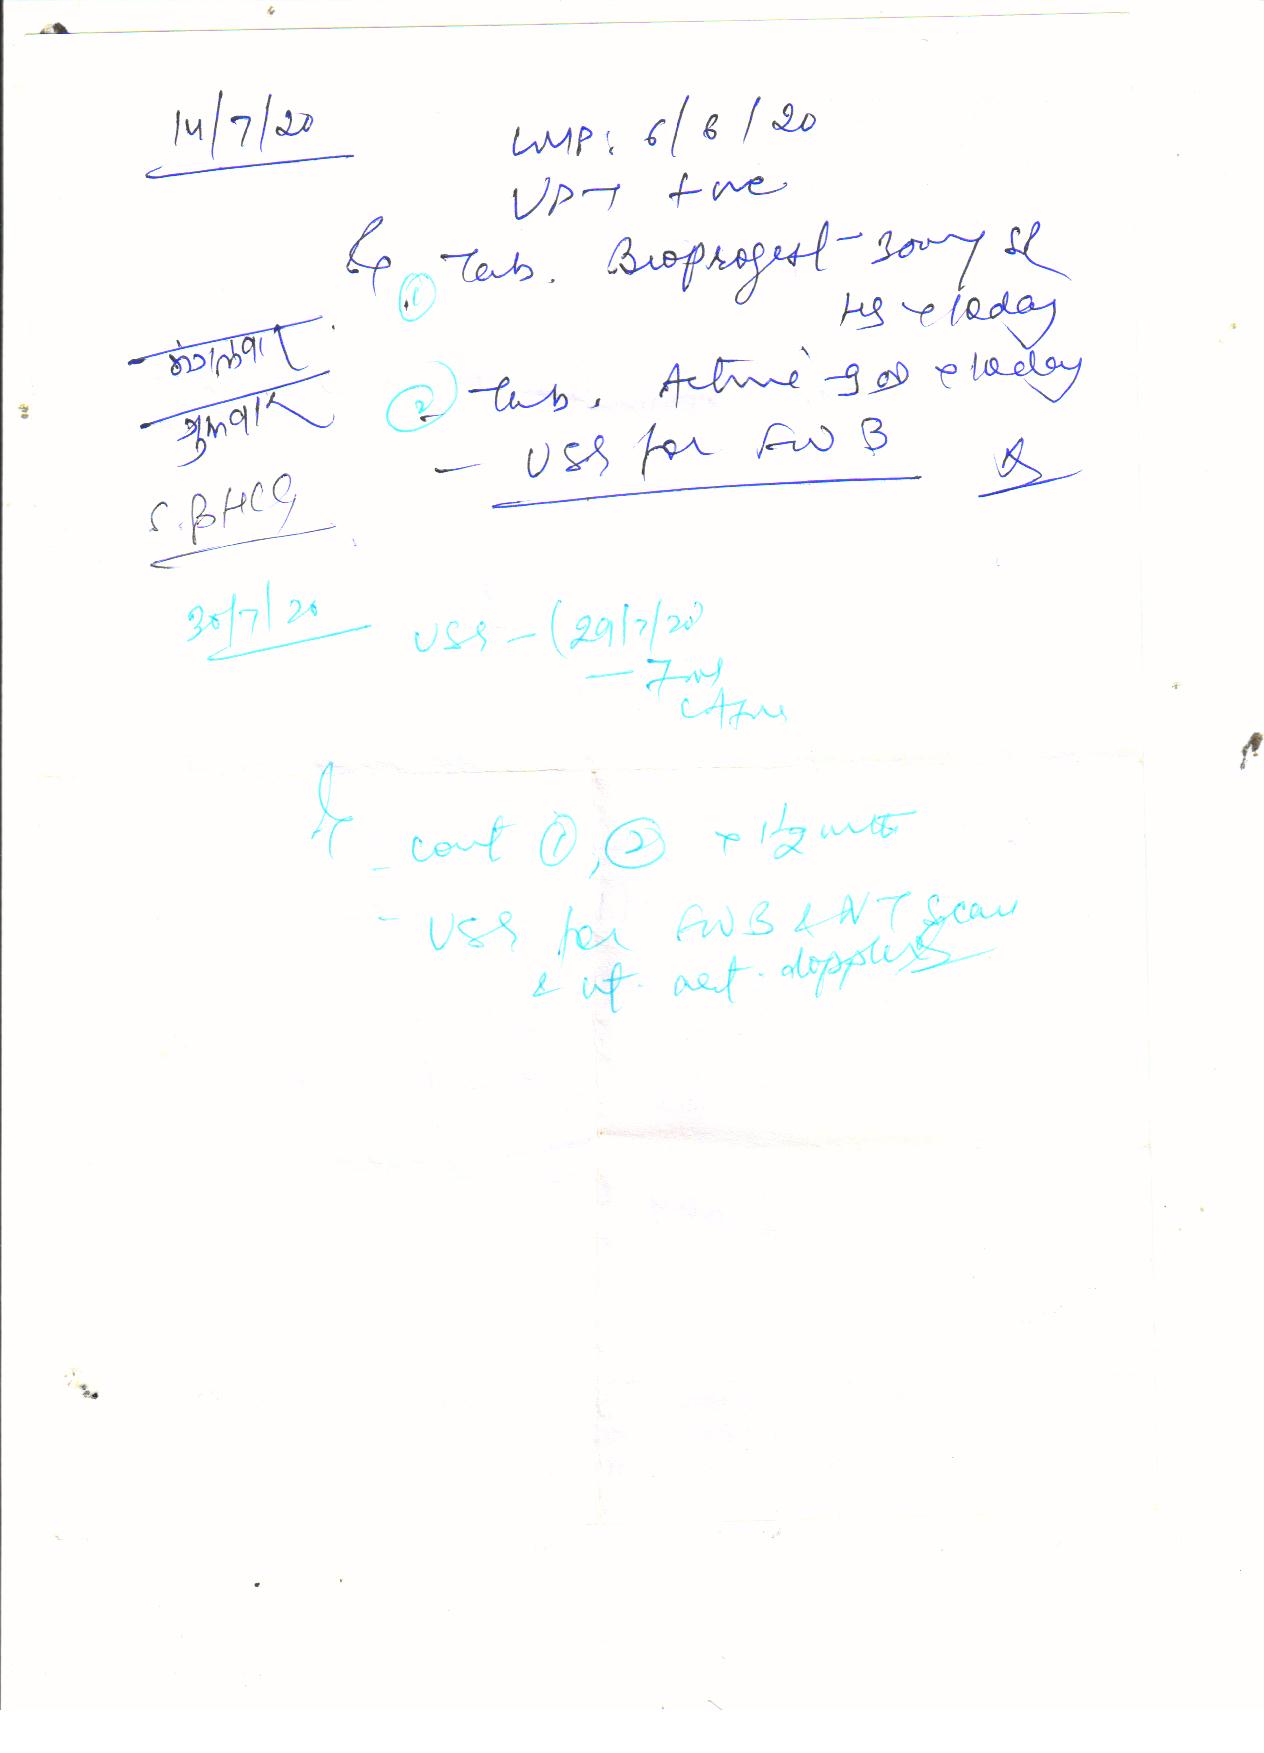 14/7/20
LMP: 6/6/20
UPT +ve
Rx
① Tab. Bioprogest - 300mg SR
HS x 10day
मंगळवार
② Tab. Active - 9 OD x 10day
शुक्रवार
- USG for FWB
S. βHCG
30/7/20
USG - (29/7/20)
Rx
- cont ①, ② x 1½ mth
- USG for FWB & NT scan
& ut. art. doppler